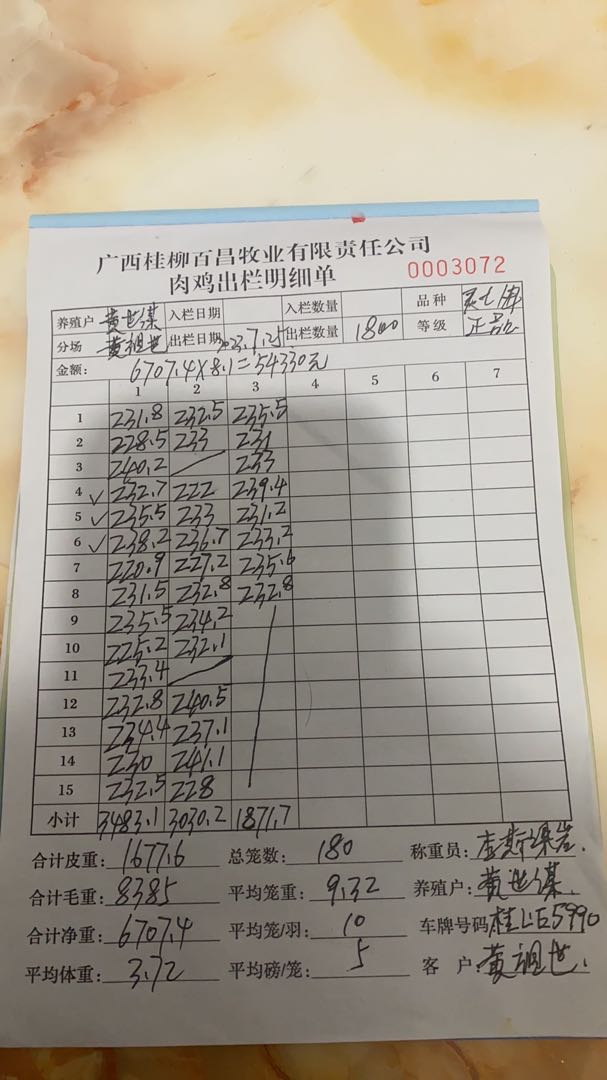 广西桂柳百昌牧业有限责任公司
肉鸡出栏明细单 0003072
养殖户 黄世谋 入栏日期 入栏数量 品种
分场 黄祖世 出栏日期 2023.7.25 出栏数量 1800 等级 正品
金额: 6707.4×8.1=54330元
1 2 3 4 5 6 7
1 231.8 232.5 235.5
2 228.5 233 231
3 240.2 233
4 ✓ 232.7 222 239.4
5 ✓ 235.5 233 231.2
6 ✓ 238.2 236.7 233.2
7 220.9 227.2 235.6
8 231.5 232.8 232.8
9 235.5 234.2
10 225.2 232.1
11 233.4
12 232.8 240.5
13 234.4 237.1
14 230 241.1
15 232.5 228
小计 3483.1 3030.2 1871.7
合计皮重: 1677.6 总笼数: 180 称重员:
合计毛重: 8385 平均笼重: 9.32 养殖户: 黄世谋.
合计净重: 6707.4 平均笼/羽: 10 车牌号码 桂L·E5990
平均体重: 3.72 平均磅/笼: 5 客户: 黄祖世.